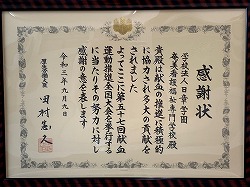 感謝状
学校法人日章学園
奄美看護福祉専門学校殿
貴殿は献血の推進に積極的
に協力され多大の貢献を
されました
よってここに第五十七回献血
運動推進全国大会を挙行する
に当たりその努力に対し
感謝の意を表します
令和三年九月九日
厚生労働大臣 田村憲久